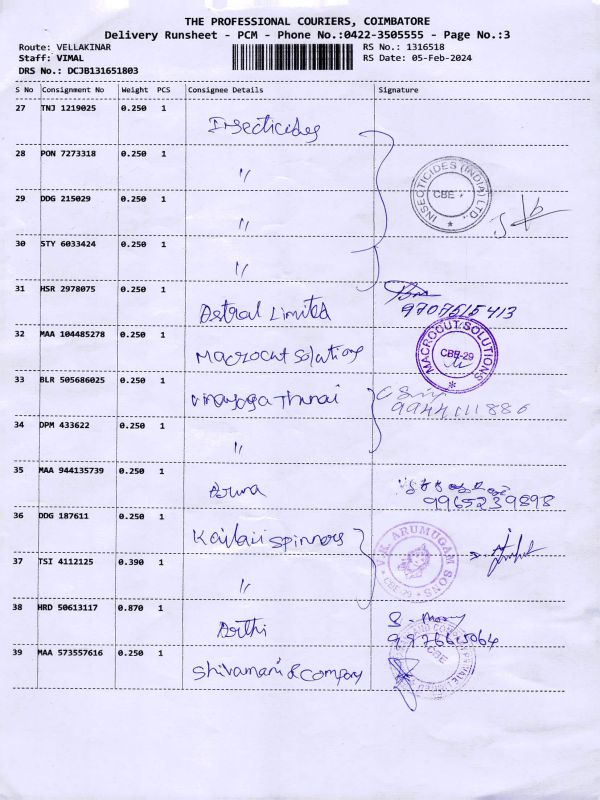 THE PROFESSIONAL COURIERS, COIMBATORE
Delivery Runsheet - PCM - Phone No.:0422-3505555 - Page No.:3
Route: VELLAKINAR RS No.: 1316518
Staff: VIMAL RS Date: 05-Feb-2024
DRS No.: DCJB131651803
S No Consignment No Weight PCS Consignee Details Signature
27 TNJ 1219025 0.250 1
Insecticides
28 PON 7273318 0.250 1
"
INSECTICIDES (INDIA) LTD.
CBE
29 DDG 215029 0.250 1
"
30 STY 6033424 0.250 1
"
31 HSR 2978075 0.250 1
Astral Limited
9707615413
32 MAA 104485278 0.250 1
Macrocut Solutions
MACROCUT SOLUTIONS
CBE-29
33 BLR 505686025 0.250 1
Vinayaga Thunai
9944111886
34 DPM 433622 0.250 1
"
35 MAA 944135739 0.250 1
Aruna
9965239898
36 DDG 187611 0.250 1
Kailaii Spinners
V.K. ARUMUGAM SONS
CBE-29
37 TSI 4112125 0.390 1
"
38 HRD 50613117 0.870 1
Arthi
9976615064
39 MAA 573557616 0.250 1
Shivamani & Company
CBE